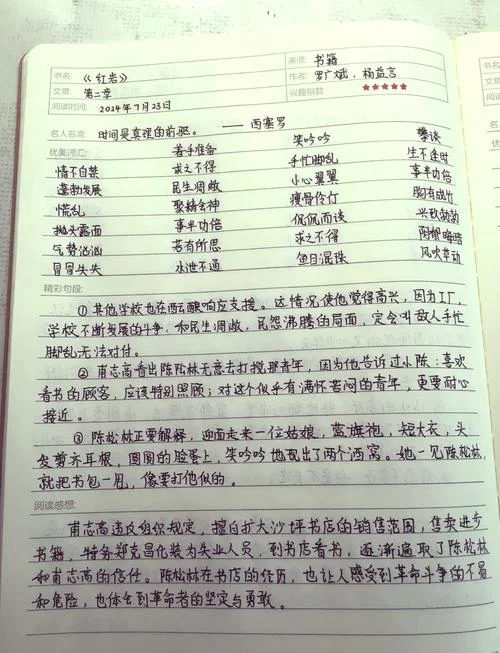 书名：《红岩》 来源：书籍
文章：第二章 作者：罗广斌、杨益言
阅读时间：2024年7月23日 兴趣指数 ★★★★★
名人名言：时间是真理的前驱。 ——西塞罗
优美词汇： 着手准备 笑吟吟 攀谈
情不自禁 求之不得 手忙脚乱 生不逢时
蓬勃发展 民生凋敝 小心翼翼 事半功倍
慌乱 聚精会神 瘦骨伶仃 胸有成竹
抛头露面 事半功倍 侃侃而谈 兴致勃勃
气势汹汹 若有所思 求之不得 阴郁晦暗
冒冒失失 水泄不通 鱼目混珠 风吹草动
精彩句段：
①其他学校也在酝酿响应支援。这情况使他觉得高兴，因为工厂，
学校不断发展的斗争，和民生凋敝，民怨沸腾的局面，定会叫敌人手忙
脚乱无法对付。
②甫志高看出陈松林无意去打搅那青年，因为他告诉过小陈：喜欢
看书的顾客，应该特别照顾；对这个似乎有满怀苦闷的青年，更要耐心
接近。
③陈松林正要解释，迎面走来一位姑娘，蓝旗袍，短大衣，头
发剪齐耳根，圆圆的脸蛋上，笑吟吟地现出了两个酒窝。她一见陈松林，
就把书包一甩，像要打他似的。
阅读感想：
甫志高违反组织规定，擅自扩大沙坪书店的销售范围，售卖进步
书籍，特务郑克昌化装为失业人员，到书店看书，逐渐骗取了陈松林
和甫志高的信任。陈松林在书店的经历，也让人感受到革命斗争的不易
和危险，也体会到革命者的坚定与勇敢。